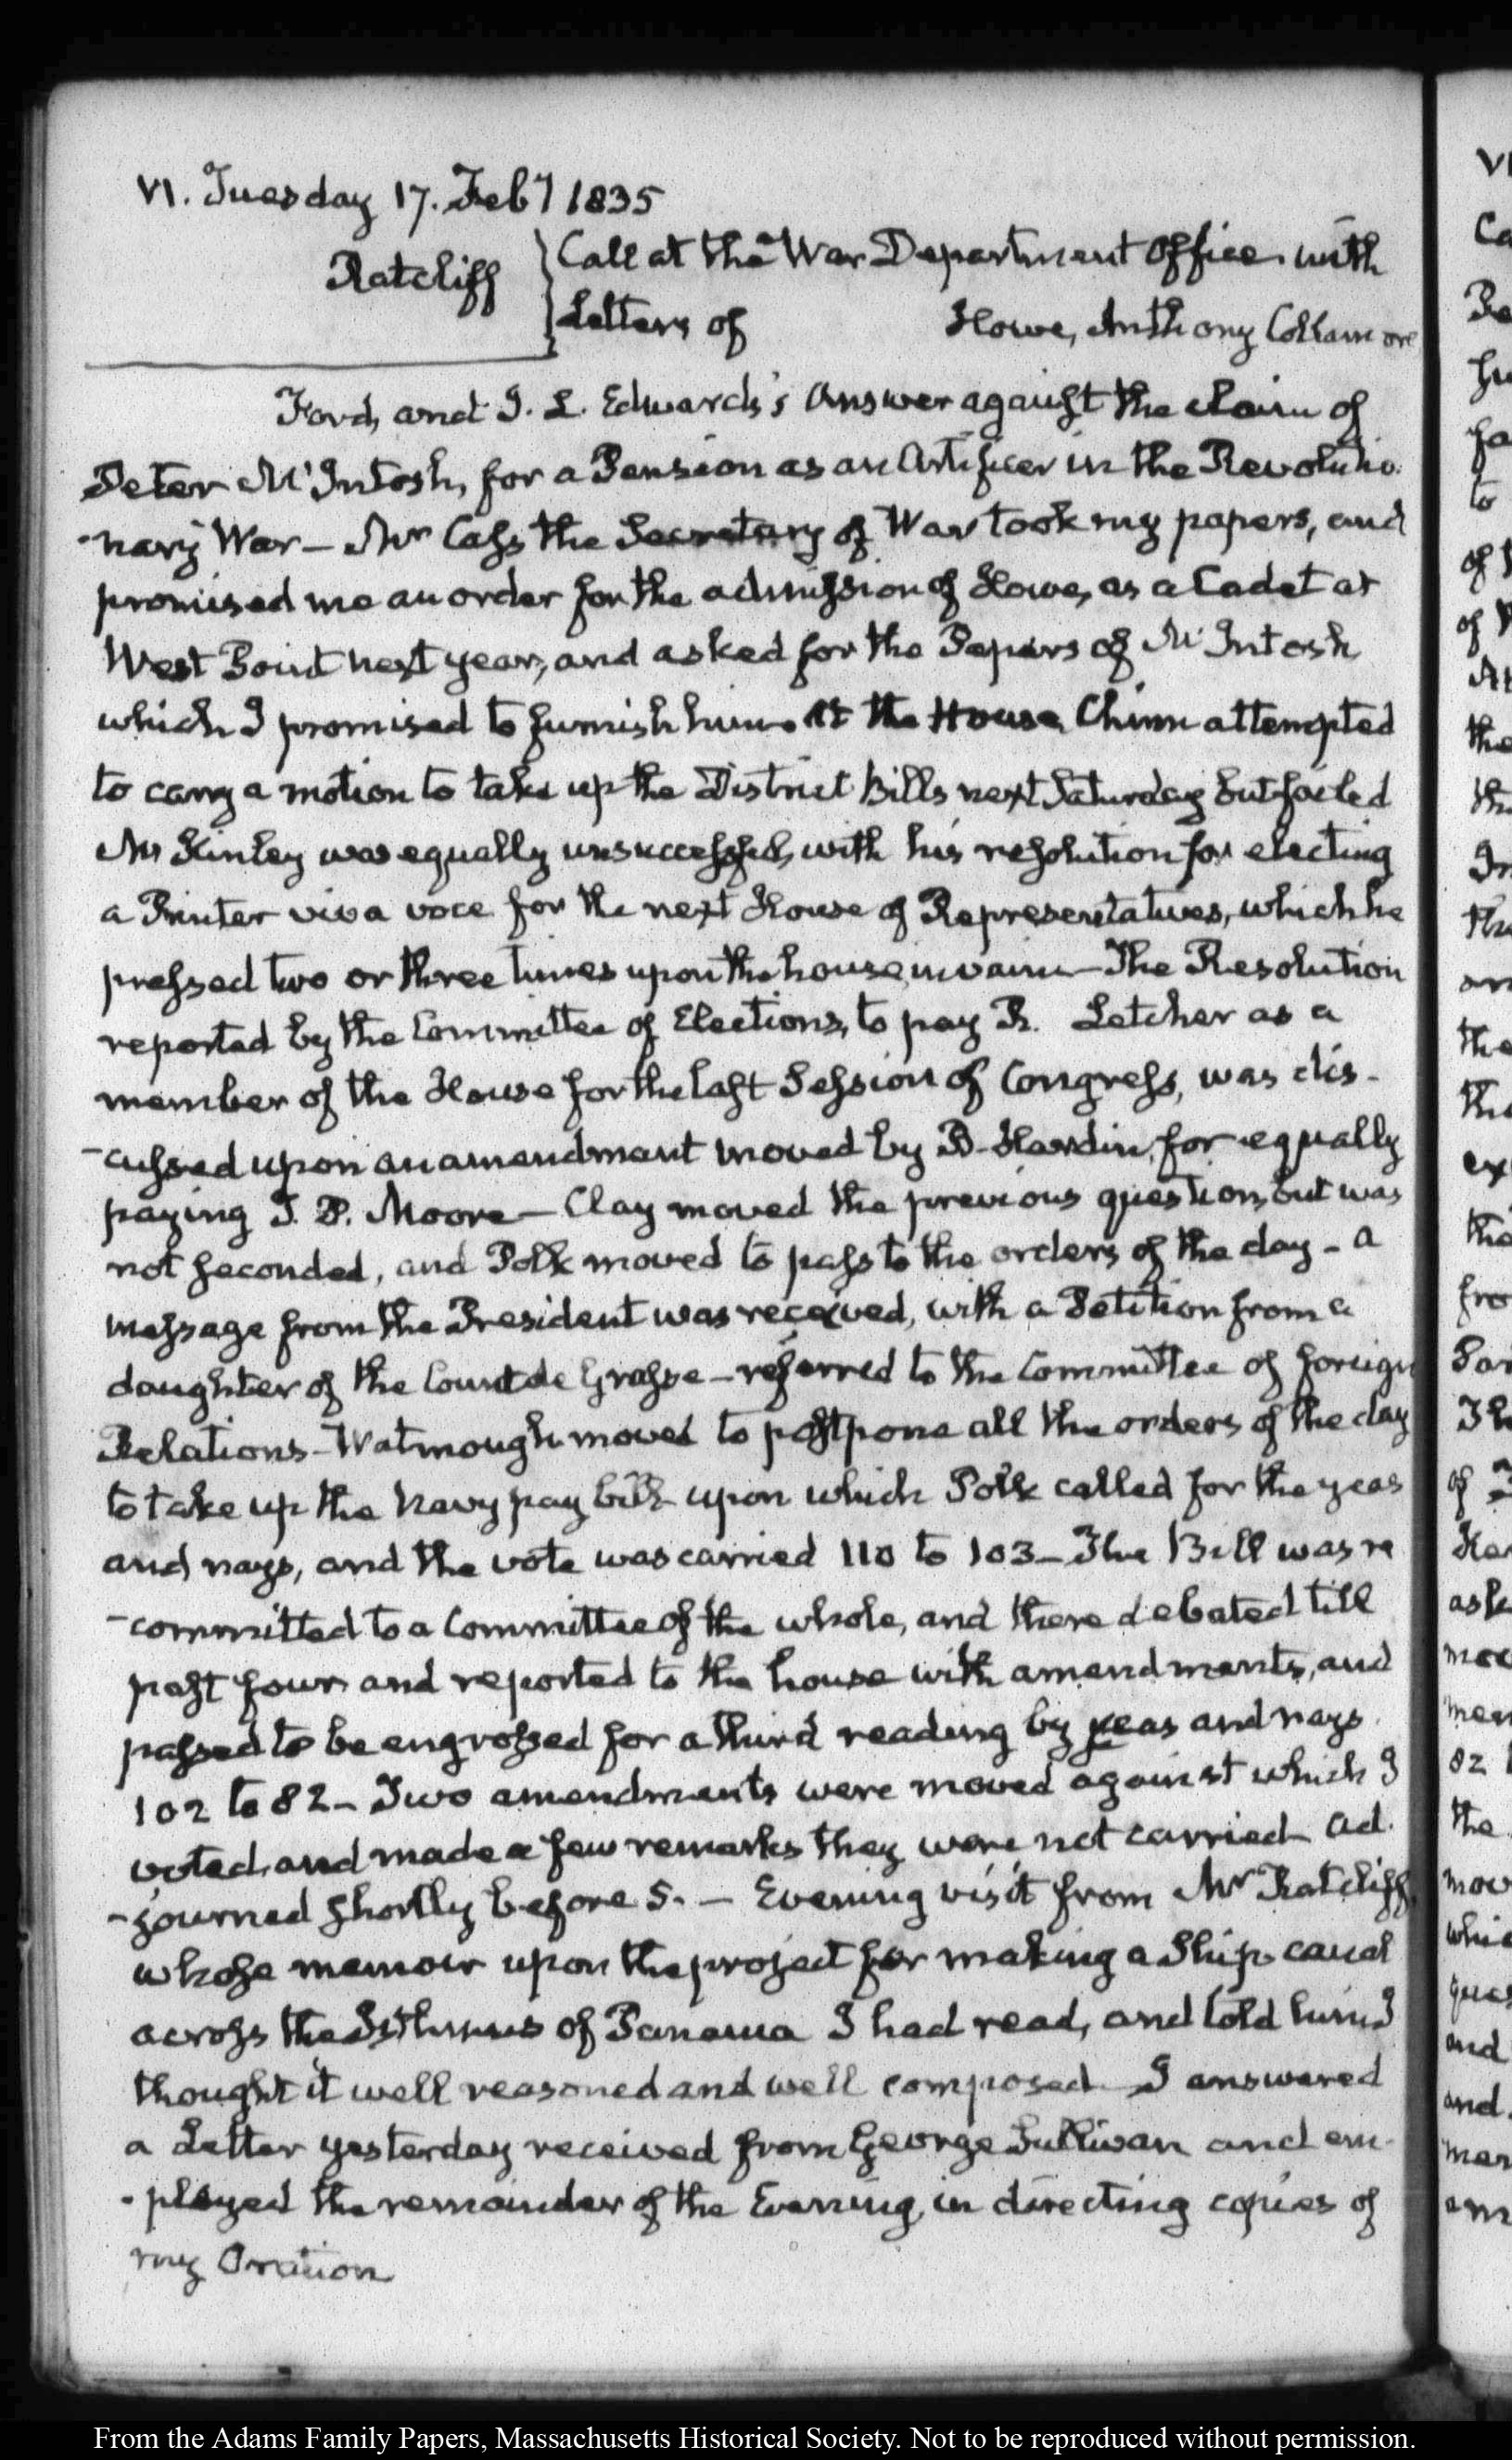 VI. Tuesday 17. Feby 1835
Ratcliff } Call at the War Department Office with
Letters of Howe, Anthony Collamore
Ford, and J. L. Edwards's Answer against the claim of
Peter McIntosh, for a Pension as an Artificer in the Revolutio
-nary War — Mr Cass the Secretary of War took my papers, and
promised me an order for the admission of Howe, as a Cadet at
West Point next year, and asked for the Papers of McIntosh
which I promised to furnish him. At the House Chinn attempted
to carry a motion to take up the District Bills next Saturday but failed
McKinley was equally unsuccessful, with his resolution for electing
a Printer viva voce for the next House of Representatives, which he
pressed two or three times upon the house, in vain — The Resolution
reported by the Committee of Elections, to pay R. Letcher as a
member of the House for the last Session of Congress, was dis-
-cussed upon an amendment moved by B. Hardin, for equally
paying T. P. Moore — Clay moved the previous question, but was
not seconded, and Polk moved to pass to the orders of the day - a
message from the President was received, with a Petition from a
daughter of the Count de Grasse — referred to the Committee of foreign
Relations - Watmough moved to postpone all the orders of the day
to take up the Navy pay bill upon which Polk called for the yeas
and nays, and the vote was carried 110 to 103 — The Bill was re
-committed to a Committee of the whole, and there debated till
past four and reported to the house with amendments, and
passed to be engrossed for a third reading by yeas and nays
102 to 82 — Two amendments were moved against which I
voted, and made a few remarks they were not carried Ad.
-journed shortly before 5. — Evening visit from Mr Ratcliff,
whose memoir upon the project for making a Ship canal
across the Isthmus of Panama I had read, and told him I
thought it well reasoned and well composed — I answered
a Letter yesterday received from George Sullivan and em-
-ployed the remainder of the Evening, in directing copies of
my Oration
From the Adams Family Papers, Massachusetts Historical Society. Not to be reproduced without permission.